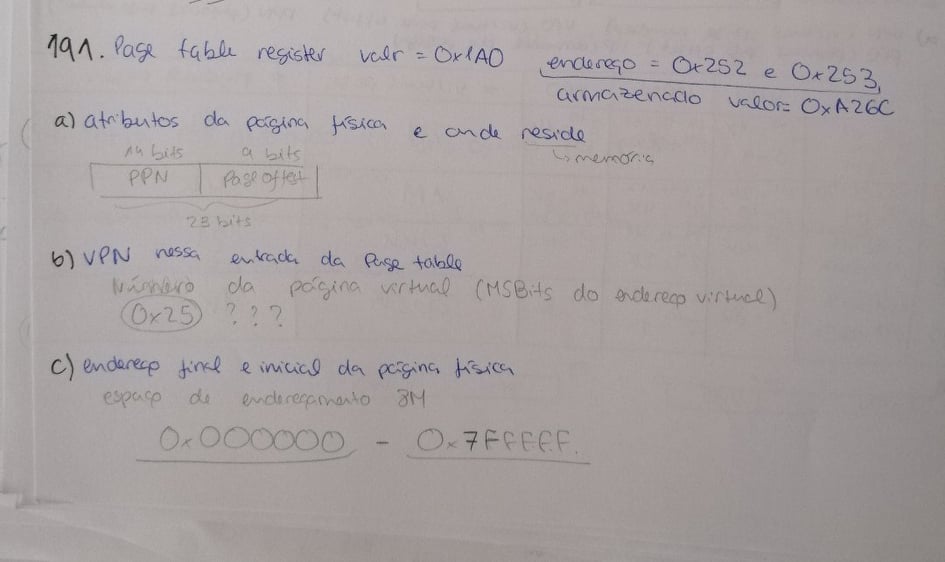 191. Page table register valr = 0x1A0 endereço = 0x252 e 0x253,
armazenado valor= 0xA26C
a) atributos da página física e onde reside
↳ memória
14 bits 9 bits
PPN Page offest
23 bits
b) VPN nessa entrada da Page table
Número da página virtual (MSBits do endereço virtual)
0x25 ???
c) endereço final e inicial da página física
espaço de endereçamento 8M
0x000000 - 0x7FFFFF.